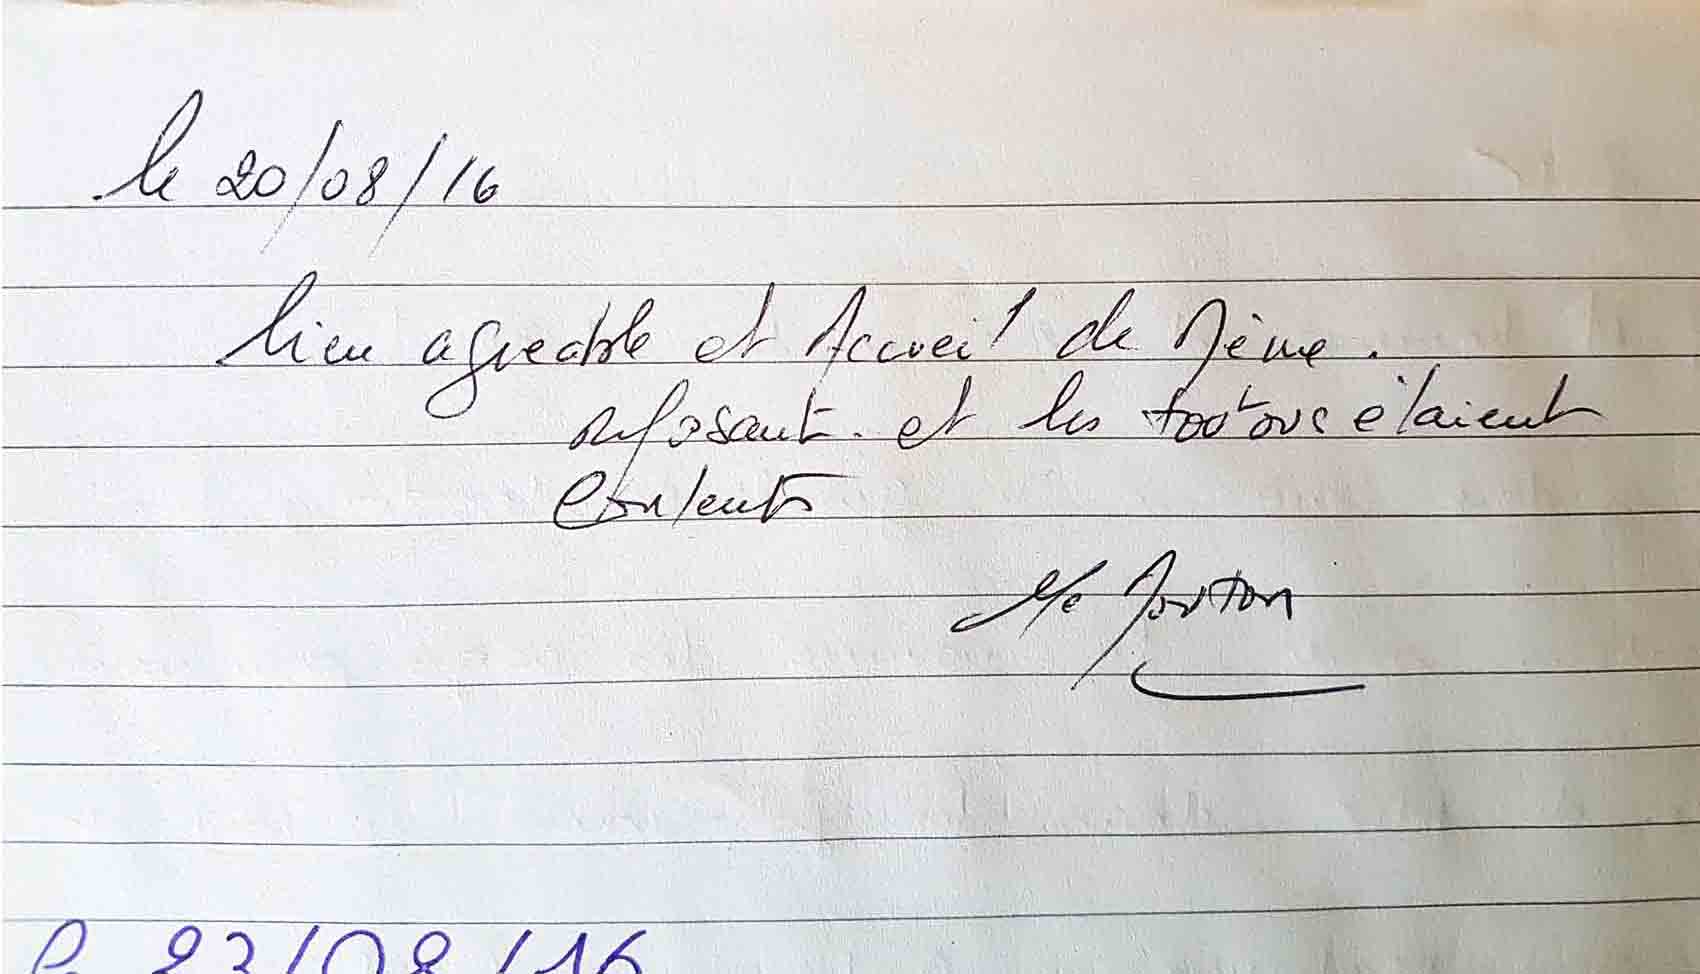 le 20/08/16
lieu agreable et Accueil de Même.
reposant. et les toutous étaient
contents
Me Mouton
le 23/08/16